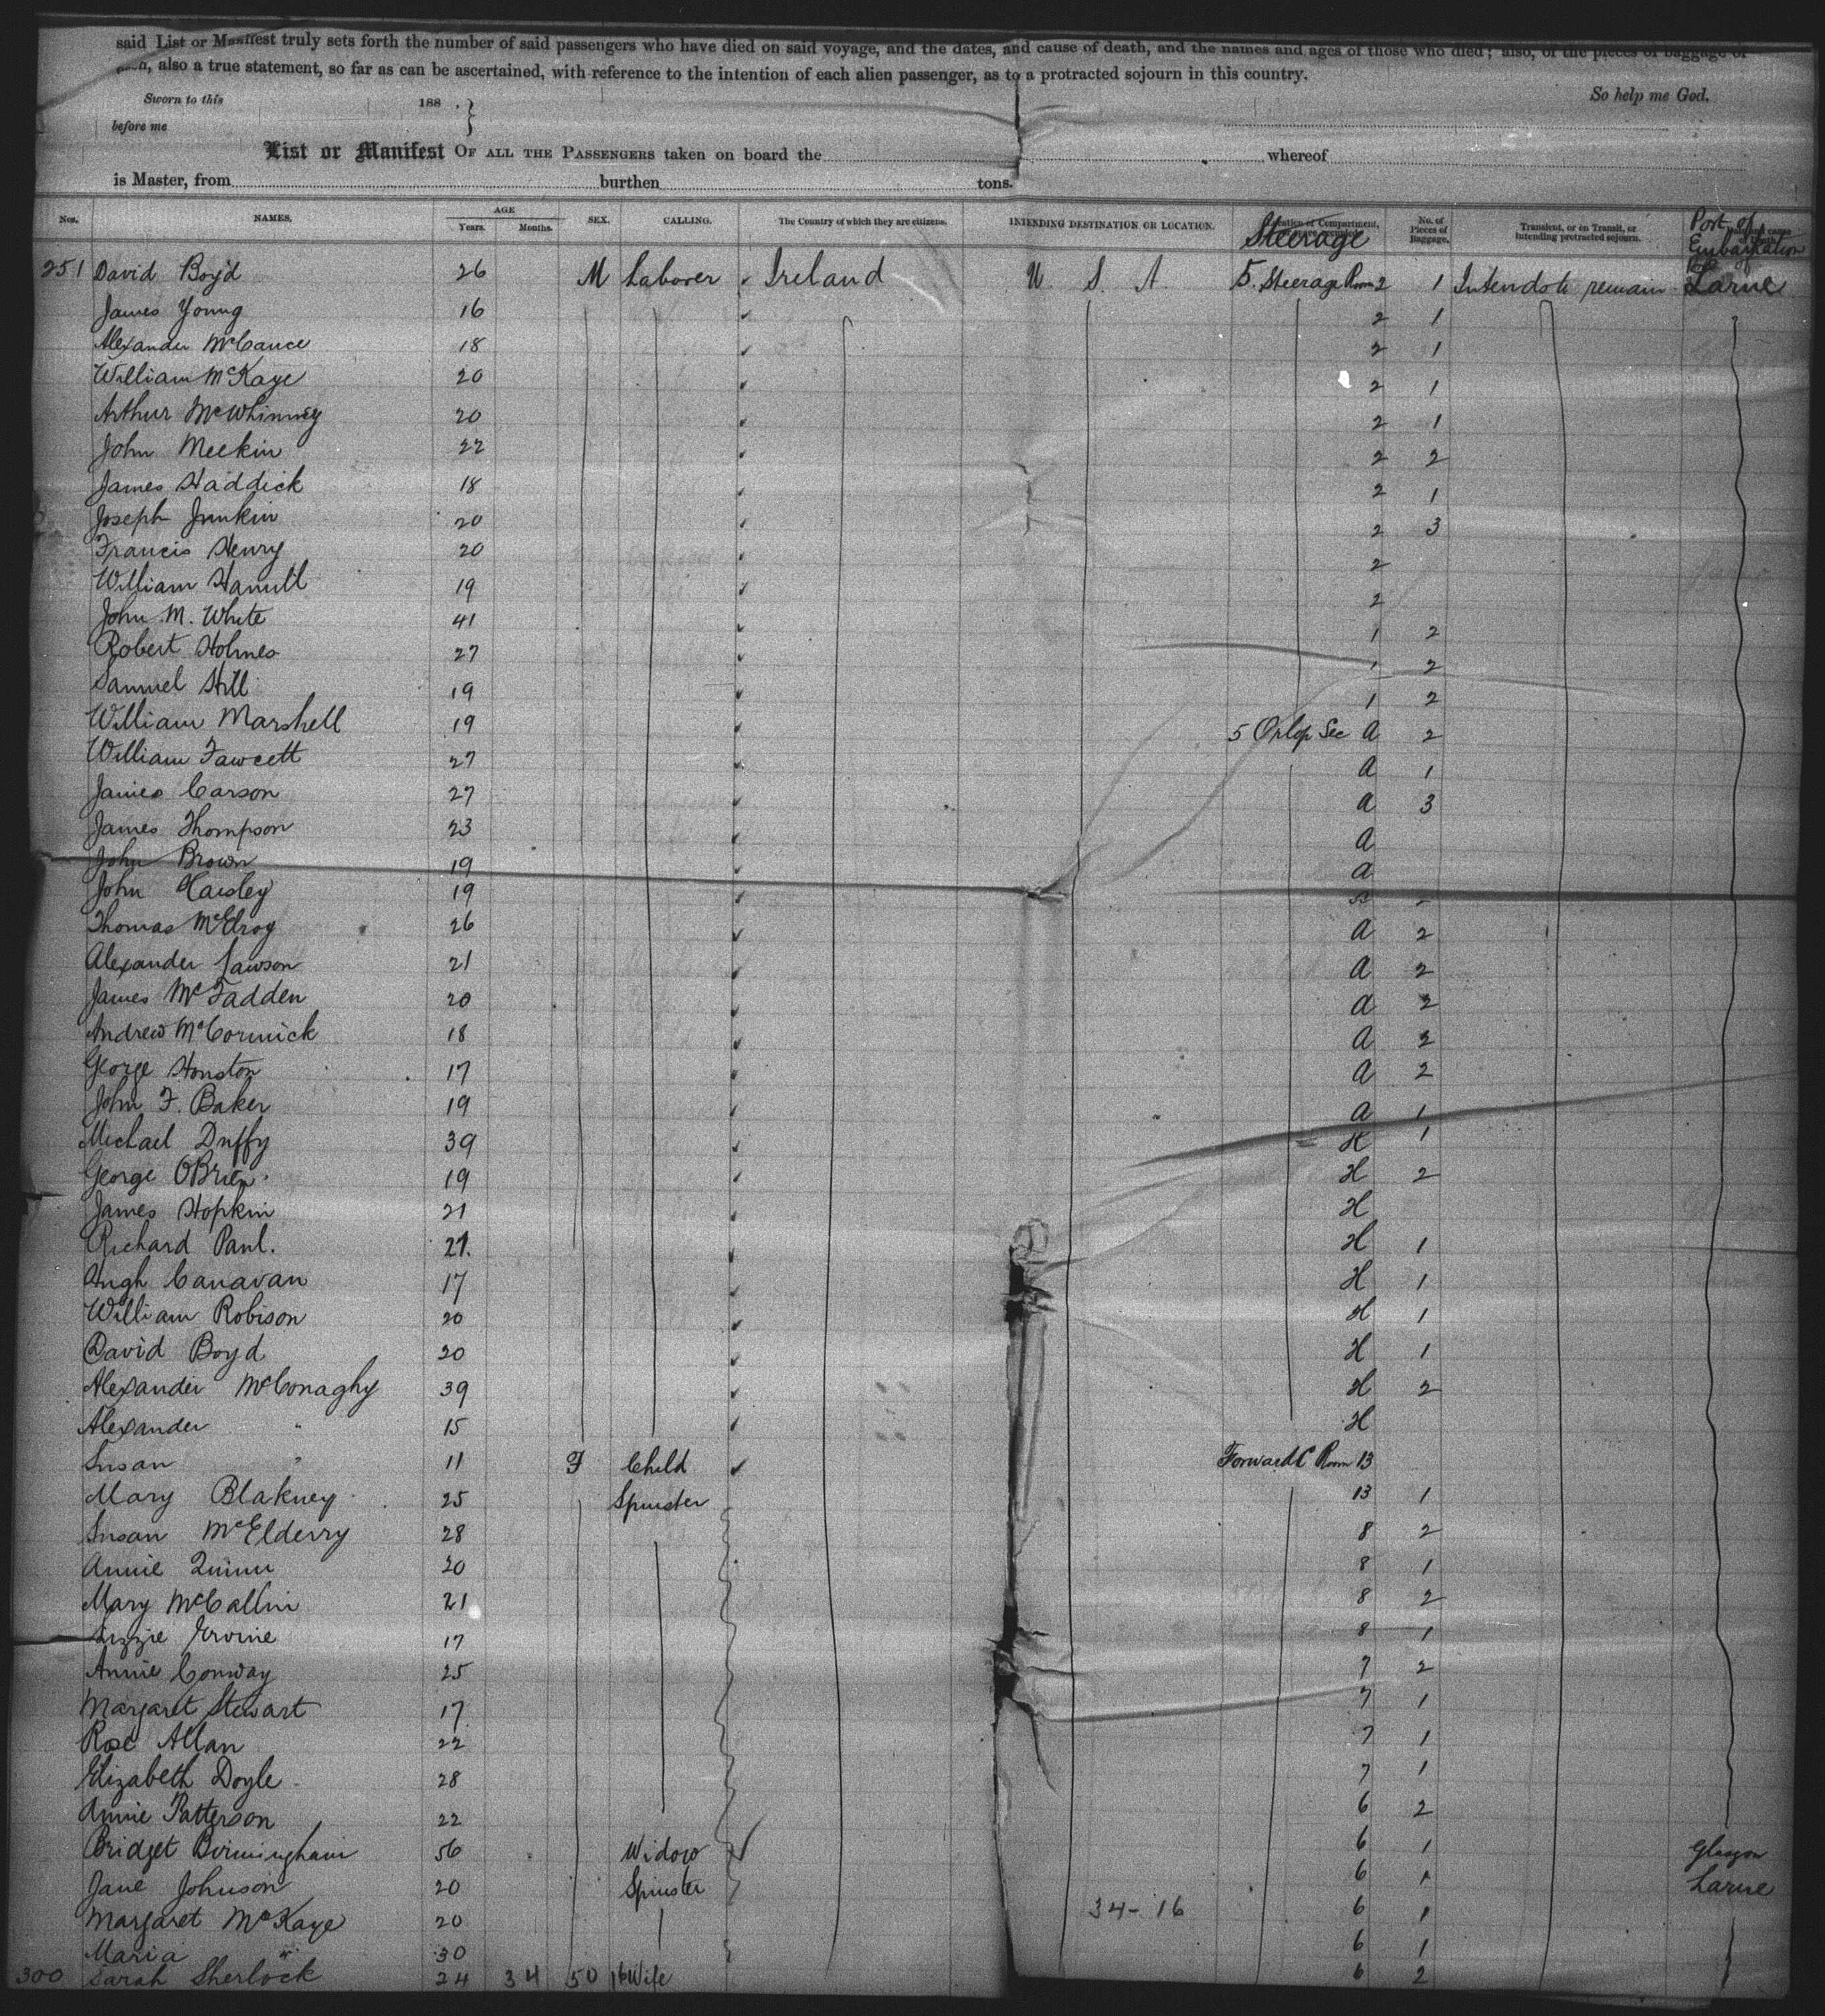 said List or Manifest truly sets forth the number of said passengers who have died on said voyage, and the dates, and cause of death, and the names and ages of those who died; also, of the pieces of baggage of
also a true statement, so far as can be ascertained, with reference to the intention of each alien passenger, as to a protracted sojourn in this country.
Sworn to this 188 . } So help me God.
before me
List or Manifest OF ALL THE PASSENGERS taken on board the whereof
is Master, from burthen tons.
Nos. NAMES. AGE Years. Months. SEX. CALLING. The Country of which they are citizens. INTENDING DESTINATION OR LOCATION. Steerage No. of Pieces of Baggage. Transient, or en Transit, or intending protracted sojourn. Port of Embarkation
251 David Boyd 26 M Laborer Ireland U. S. A 5. Steerage Room 2 1 Intends to remain Larne
James Young 16 2 1
Alexander McCance 18 2 1
William McKaye 20 2 1
Arthur McWhinney 20 2 1
John Meekin 22 2 2
James Haddick 18 2 1
Joseph Junkin 20 2 3
Francis Henry 20 2
William Hamill 19 2
John M. White 41 1 2
Robert Holmes 27 1 2
Samuel Hill 19 1 2
William Marshell 19 5 Orlop Sec A 2
William Fawcett 27 A 1
James Carson 27 A 3
James Thompson 23 A
John Brown 19 A
John 19
Thomas McElroy 26 A 2
Alexander Lawson 21 A 2
James McFadden 20 A 2
Andrew McCormick 18 A 2
George Houston 17 A 2
John F. Baker 19 A 1
Michael Duffy 39 H 1
George OBrien 19 H 2
James Hopkin 21 H
Richard Paul. 21. H 1
Hugh Canavan 17 H 1
William Robison 20 H 1
David Boyd 20 H 1
Alexander McConaghy 39 H 2
Alexander " 15 H
Susan " 11 F Child Forward C Room 13
Mary Blakney 25 Spinster 13 1
Susan McElderry 28 8 2
Annie Quinn 20 8 1
Mary McCallin 21 8 2
Lizzie Irvine 17 8 1
Annie Conway 25 7 2
Margaret Stewart 17 7 1
Rose Allan 22 7 1
Elizabeth Doyle 28 7 1
Annie Patterson 22 6 2
Bridget Birmingham 56 Widow 6 1 Glasgow
Jane Johnson 20 Spinster 6 1 Larne
Margaret McKaye 20 34-16 6 1
Maria " 30 6 1
300 Sarah Sherlock 24 34 50 16 Wife 6 2